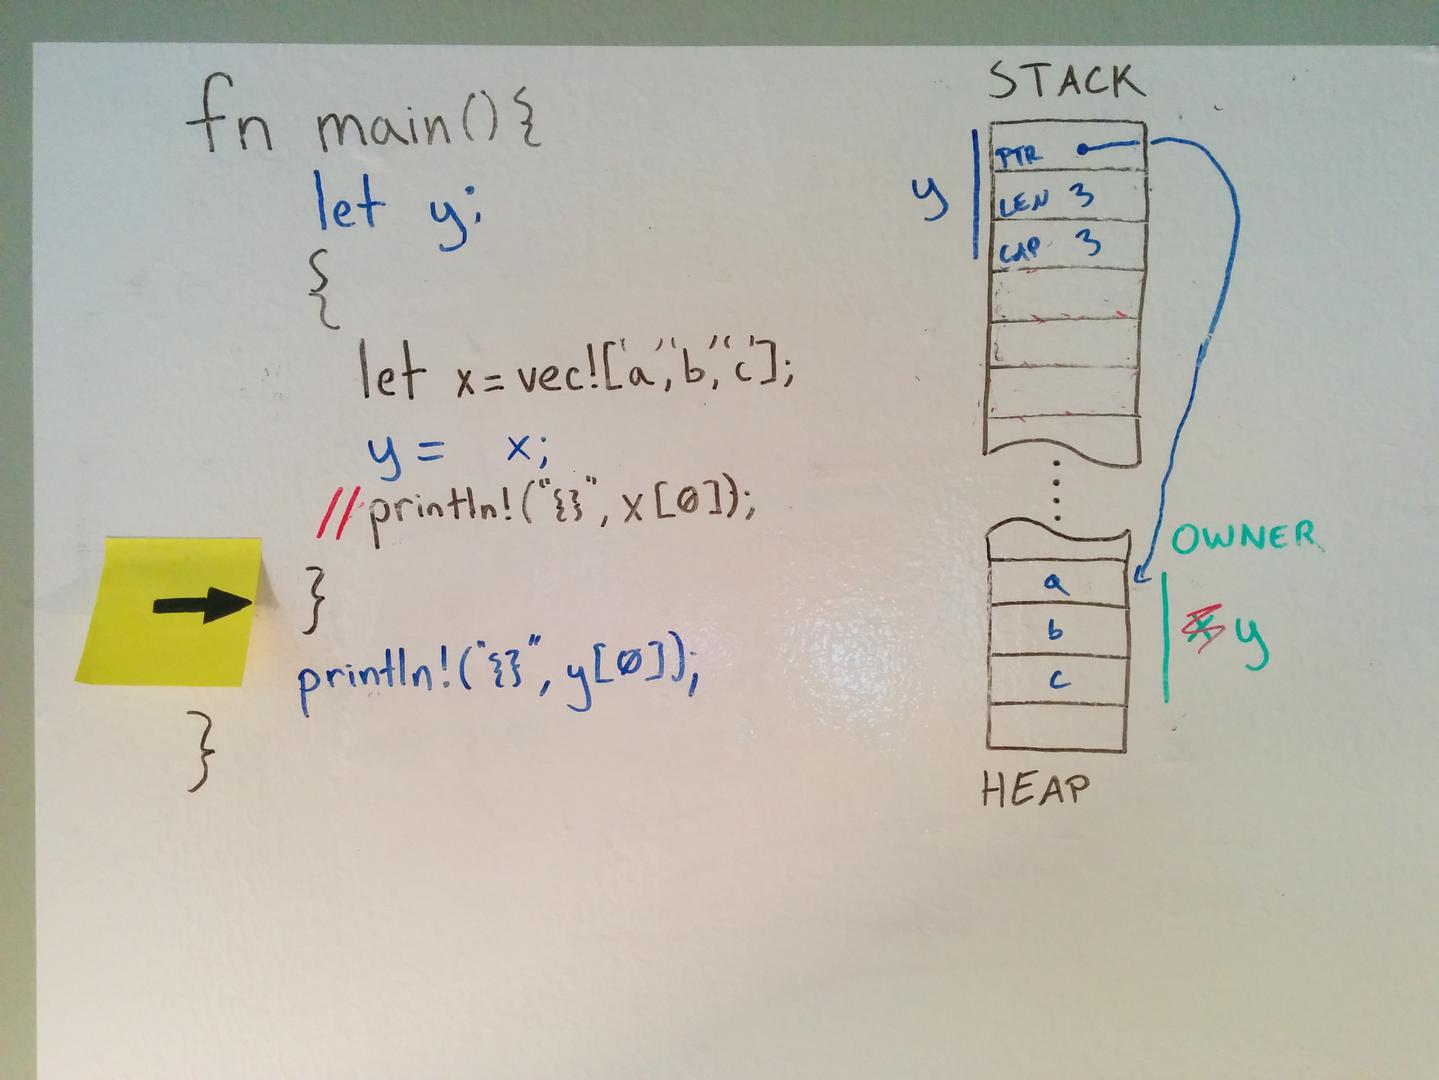 fn main(){
let y;
{
let x = vec!['a','b','c'];
y = x;
//println!("{}", x[0]);
}
println!("{}", y[0]);
}
STACK
y
PTR
LEN 3
CAP 3
OWNER
a
b
y
c
HEAP